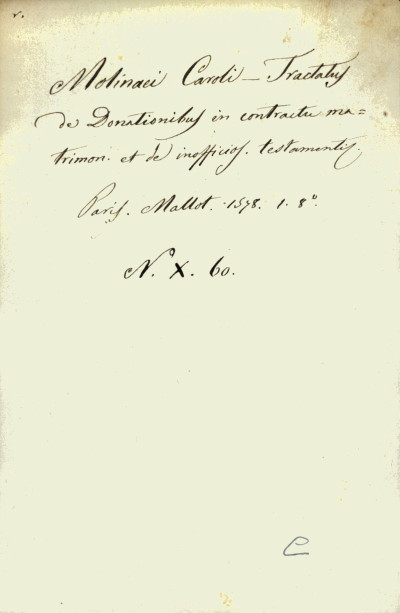 v.
Molinaei Caroli – Tractatus
de Donationibus in contractu ma=
trimon. et de inofficios. testamentis.
Paris. Mallot. 1578. 1. 8°.
N. X. 60.
C